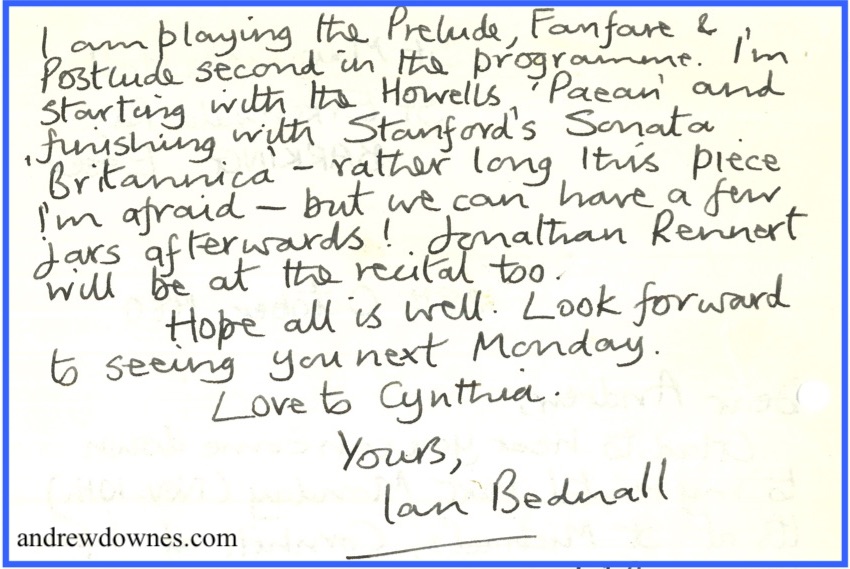 I am playing the Prelude, Fanfare &
Postlude second in the programme. I'm
starting with the Howells 'Paean' and
finishing with Stanford's Sonata
'Britannica' – rather long this piece
I'm afraid – but we can have a few
jars afterwards! Jonathan Rennert
will be at the recital too.
Hope all is well. Look forward
to seeing you next Monday.
Love to Cynthia.
Yours,
Ian Bednall
andrewdownes.com